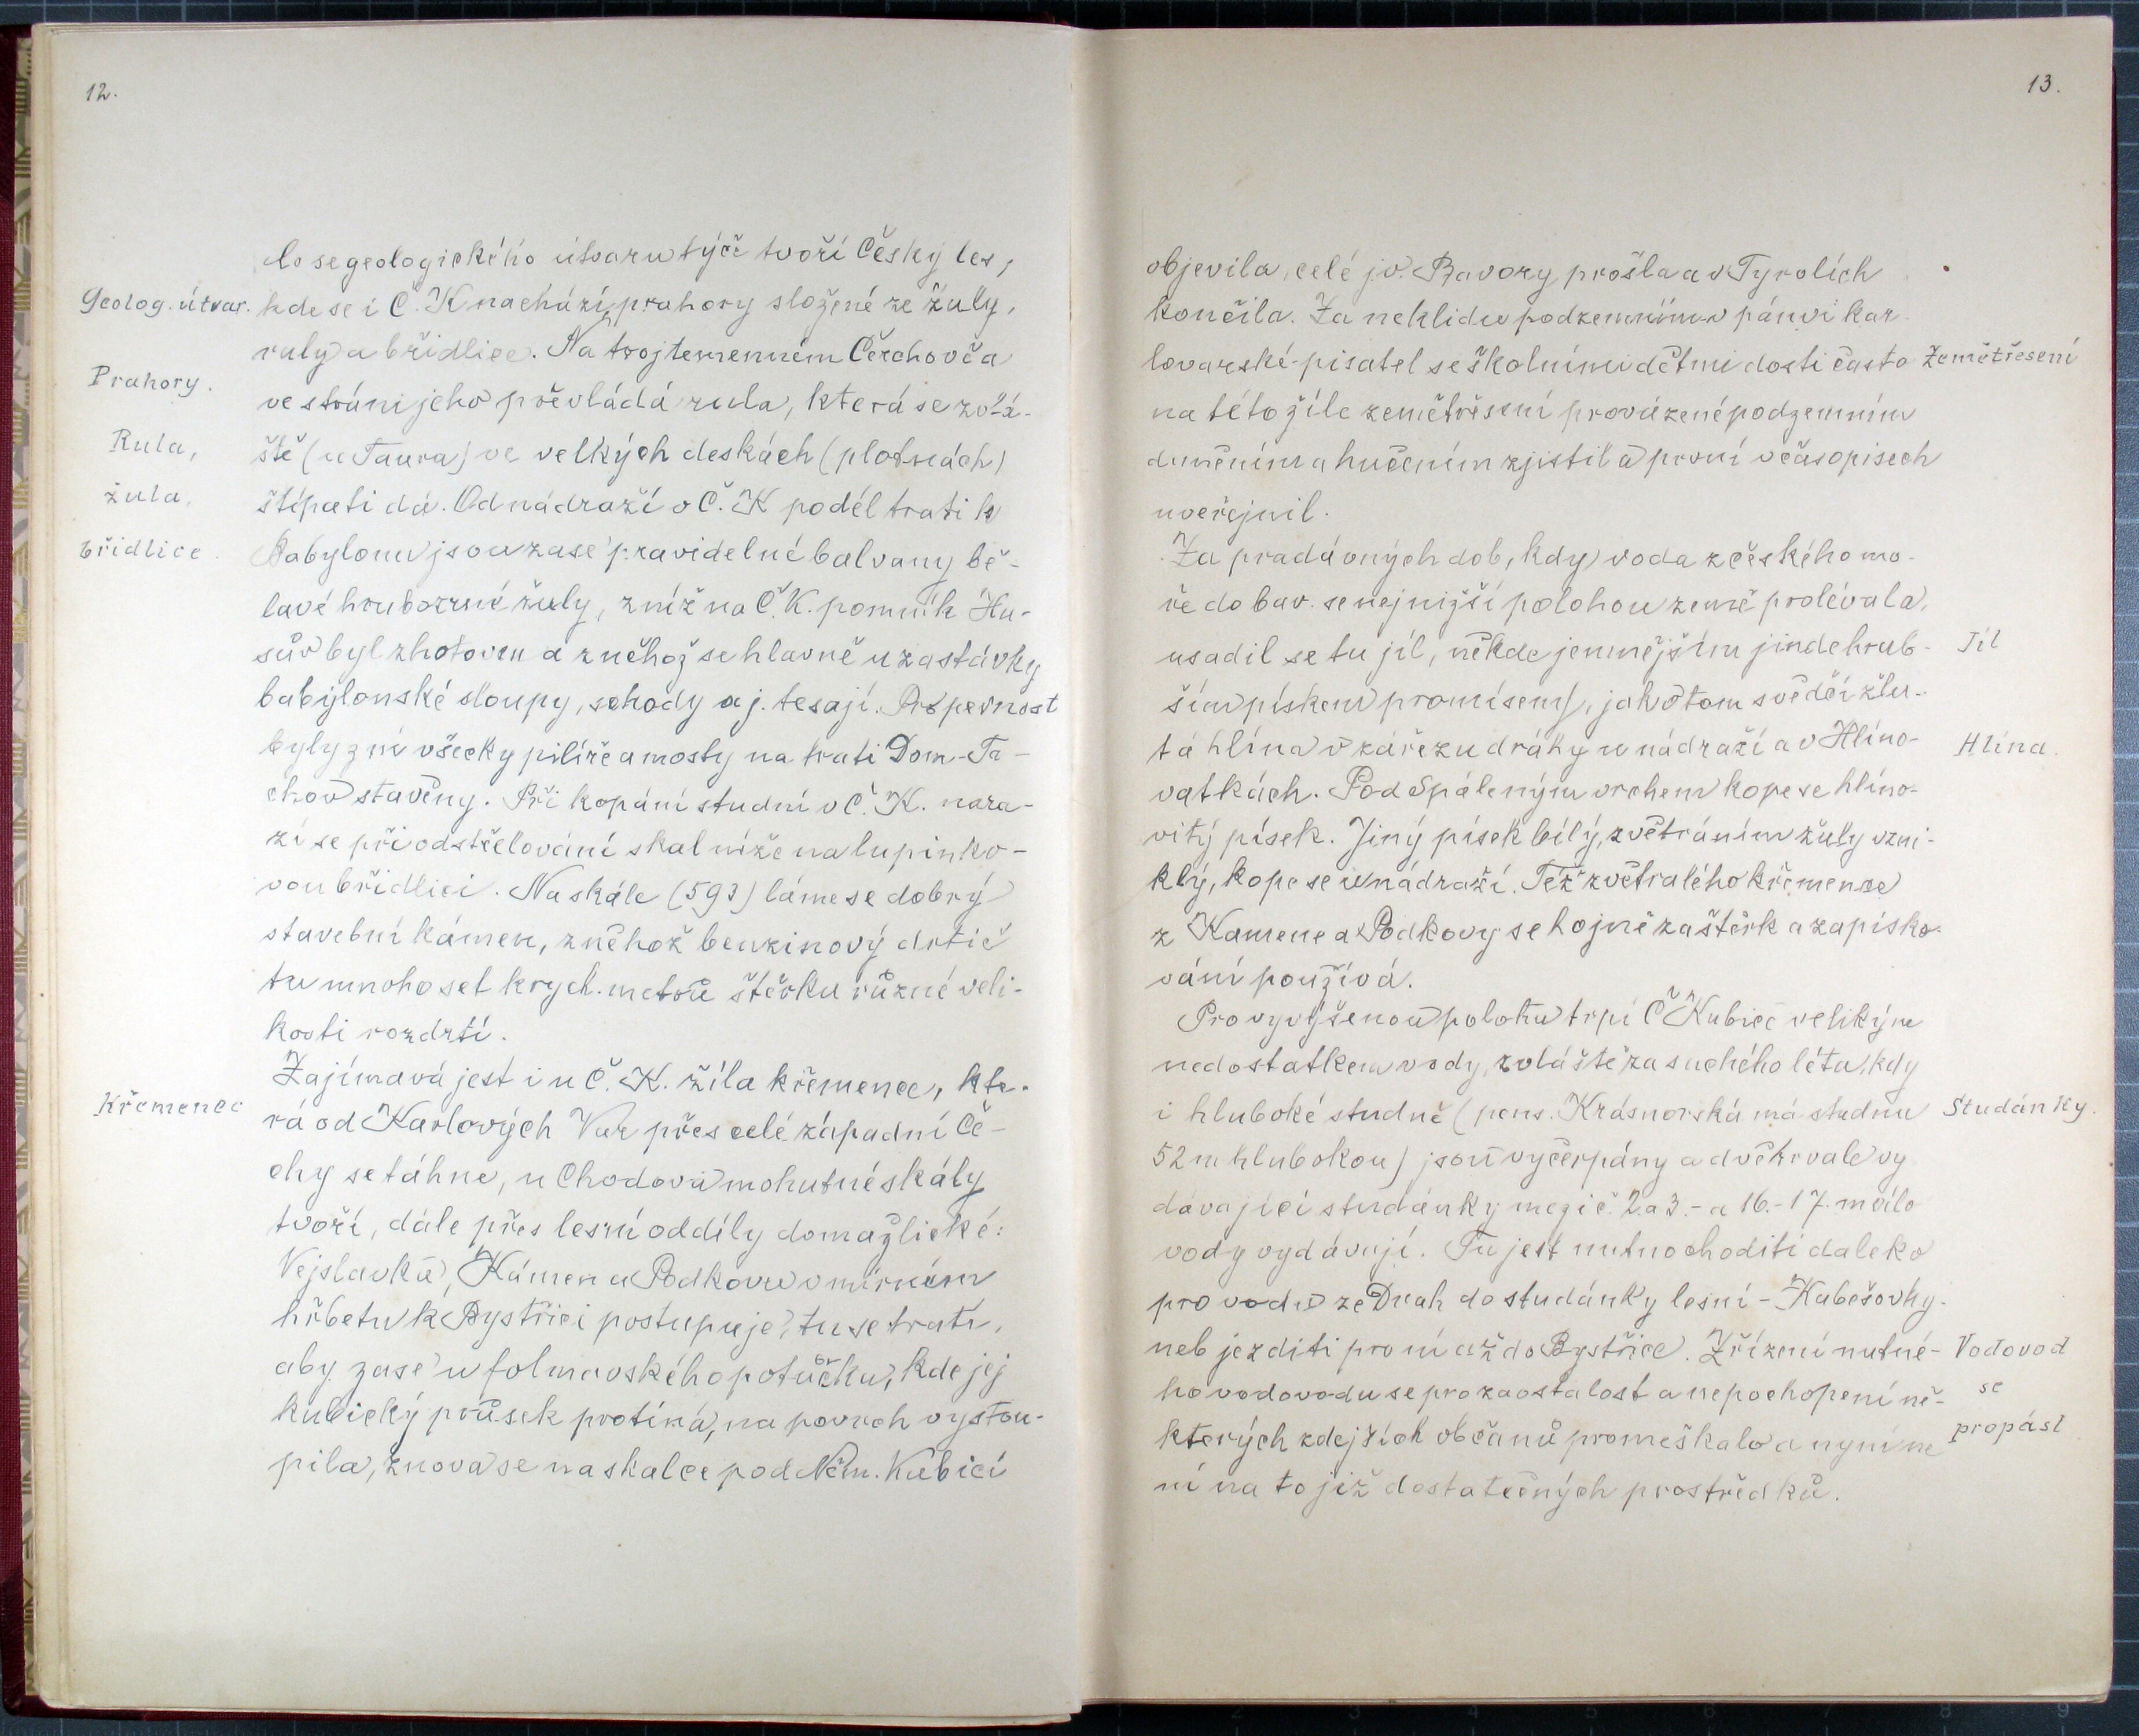 12.
Co se geologického útvaru týče tvoří Český les,
Geolog. útvar. kde se i Č. K nachází, prahory složené ze žuly,
ruly a břidlice. Na trojtemenném Čerchově a
Prahory.
ve stráni jeho převládá rula, která se zvlá-
Rula,
ště (u Taura) ve velkých deskách (plotnách)
žula,
štípati dá. Od nádraží v Č. K podél trati k
břidlice.
Babylonu jsou zase pravidelné balvany bě-
lavé hrubozrné žuly, z níž na Č. K. pomník Hu-
sův byl zhotoven a z něhož se hlavně u zastávky
babylonské sloupy, schody a j. tesají. Pro pevnost
byly z ní všecky pilíře a mosty na trati Dom-Ta-
chov stavěny. Při kopání studní v Č. K. nara-
zí se při odstřelování skal níže na lupinko-
vou břidlici. Na skále (593) láme se dobrý
stavební kámen, z něhož benzinový drtič
tu mnoho set krych. metrů štěrku různé veli-
kosti rozdrtí.
Zajímavá jest i u Č. K. žíla křemence, kte-
Křemenec
rá od Karlových Var přes celé západní Če-
chy se táhne, u Chodova mohutné skály
tvoří, dále přes lesní oddíly domažlické:
Vejslavka, Kámen a Podkovu v mírném
hřbetu k Bystřici postupuje, tu se tratí,
aby zase u folmavského potůčku, kde jej
kubický průsek protíná, na povrch vystou-
pila, znova se na skalce pod Něm. Kubicí
13.
objevila, celé jv. Bavory prošla a v Tyrolích
končila. Za neklidu podzemním v pánvi kar-
lovarské pisatel se školními dětmi dosti často Zemětřesení
na této žíle zemětřesení provázené podzemním
duněním a hučením zjistil a první v časopisech
uveřejnil.
Za pradávných dob, kdy voda z českého mo-
ře do bav. se nejnižší polohou země prolévala,
usadil se tu jíl, někde jemnějším jinde hrub- Jíl
ším pískem promísený, jak o tom svědčí žlu-
tá hlína v zářezu dráhy u nádraží a v Hlino- Hlína.
vatkách. Pod Spáleným vrchem kope se hlino-
vitý písek. Jiný písek bílý, zvětráním žuly vzni-
klý, kope se u nádraží. Též zvětralého křemence
z Kamene a Podkovy se hojně za štěrk a za písko-
vání používá.
Pro vyvýšenou polohu trpí Č Kubice velikým
nedostatkem vody, zvláště za suchého léta, kdy
i hluboké studně (pens. Krásnorská má studnu Studánky.
52 m hlubokou) jsou vyčerpány a dvě trvale vy
dávající studánky mezi č. 2 a 3. - a 16. - 17. málo
vody vydávají. Tu jest nutno choditi daleko
pro vodu ze Drah do studánky lesní - Kubešovky -
neb jezditi pro ni až do Bystřice. Zřízení nutné- Vodovod
ho vodovodu se pro zaostalost a nepochopení ně- se
kterých zdejších občanů promeškalo a nyní ne propást
ní na to již dostatečných prostředků.